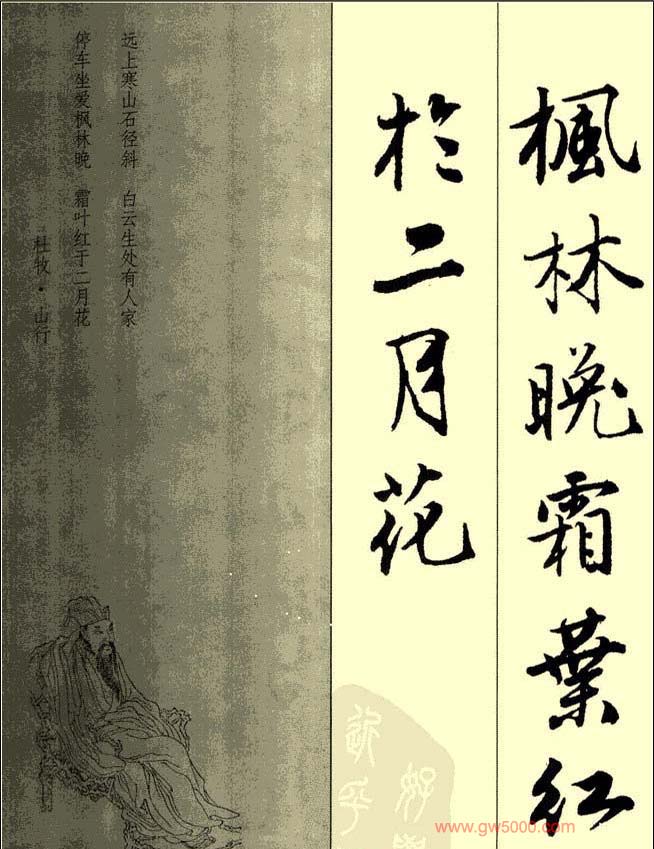 楓林晚霜葉红
於二月花
远上寒山石径斜 白云生处有人家
停车坐爱枫林晚 霜叶红于二月花
杜牧·山行
www.gw5000.com